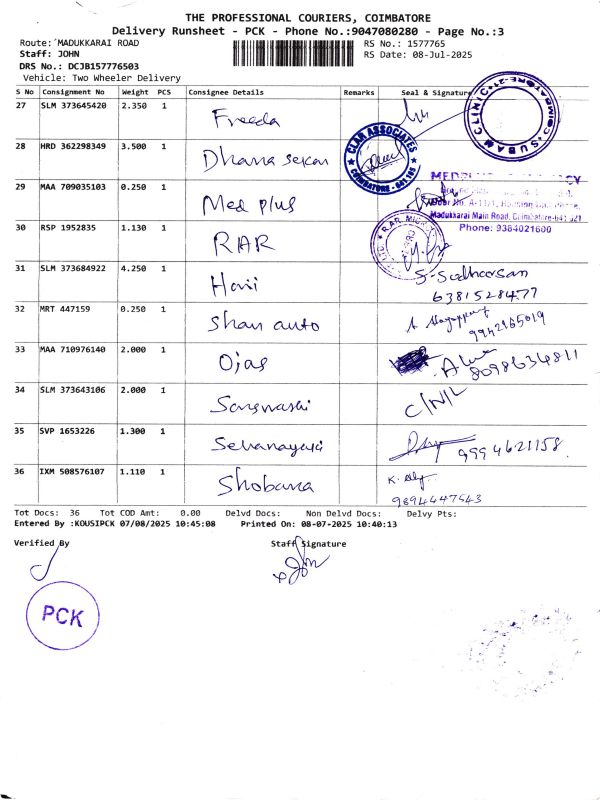 THE PROFESSIONAL COURIERS, COIMBATORE
Delivery Runsheet - PCK - Phone No.:9047080280 - Page No.:3
Route: MADUKKARAI ROAD
RS No.: 1577765
Staff: JOHN
RS Date: 08-Jul-2025
DRS No.: DCJB157776503
Vehicle: Two Wheeler Delivery
S No Consignment No Weight PCS Consignee Details Remarks Seal & Signature
27 SLM 373645420 2.350 1 Freeda
SUBAM CLINIC
28 HRD 362298349 3.500 1 Dhana sekar
CLAR ASSOCIATES
COIMBATORE - 641 105
29 MAA 709035103 0.250 1 Med plus
Madukkarai Main Road, Coimbatore-641 021
Phone: 9384021600
30 RSP 1952835 1.130 1 RAR
31 SLM 373684922 4.250 1 Hari
S. Sudharsan
6381528477
32 MRT 447159 0.250 1 Shan auto
9942165019
33 MAA 710976140 2.000 1 Ojas
8098634811
34 SLM 373643106 2.000 1 C/N/L
35 SVP 1653226 1.300 1
9994621158
36 IXM 508576107 1.110 1 Shobana
9894447543
Tot Docs: 36 Tot COD Amt: 0.00 Delvd Docs: Non Delvd Docs: Delvy Pts:
Entered By :KOUSIPCK 07/08/2025 10:45:08 Printed On: 08-07-2025 10:40:13
Verified By
Staff Signature
PCK